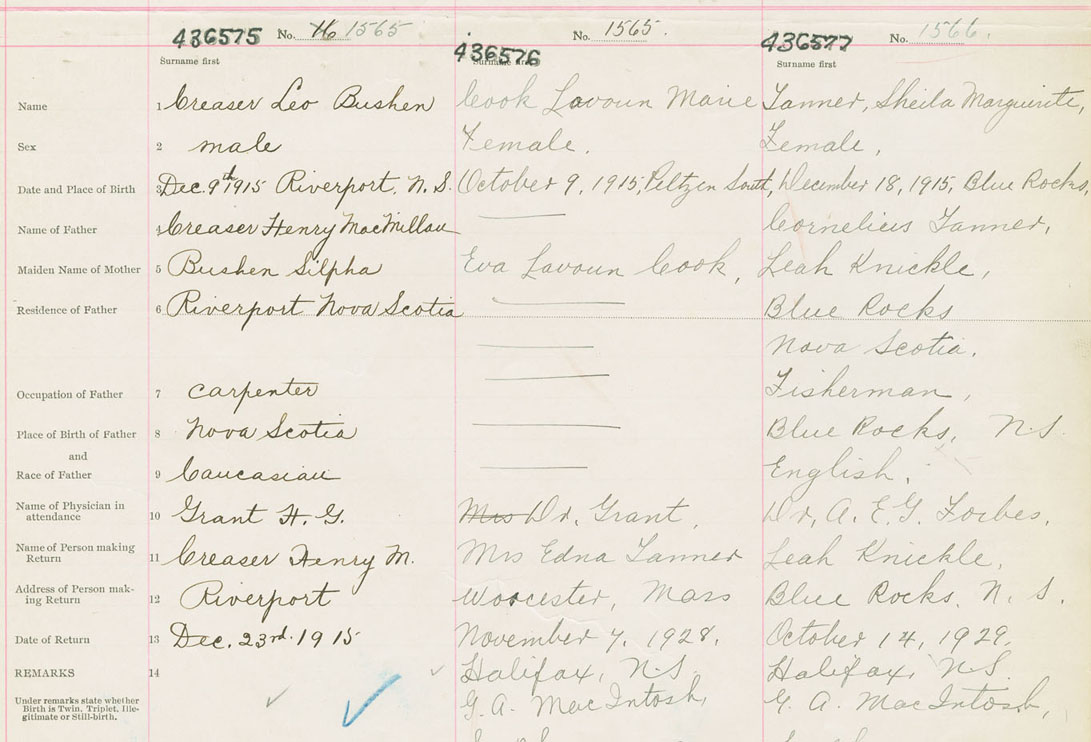 436575 No. 16 1565
436576 No. 1565.
436577 No. 1566.
Surname first
Surname first
Surname first
Name 1 Creaser Leo Bushen
Cook Lavoun Marie
Tanner, Sheila Marguirite,
Sex 2 male
Female.
Female,
Date and Place of Birth 3 Dec. 9th 1915 Riverport, N.S.
October 9, 1915, Peltzen South,
December 18, 1915, Blue Rocks,
Name of Father 4 Creaser Henry MacMillan
Cornelius Tanner,
Maiden Name of Mother 5 Bushen Silpha
Eva Lavoun Cook,
Leah Knickle,
Residence of Father 6 Riverport Nova Scotia
Blue Rocks
Nova Scotia.
Occupation of Father 7 carpenter
Fisherman,
Place of Birth of Father 8 Nova Scotia
Blue Rocks, N.S.
and
Race of Father 9 Caucasian
English,
Name of Physician in
attendance 10 Grant H. G.
Mrs Dr. Grant,
Dr, A. E. G. Forbes,
Name of Person making
Return 11 Creaser Henry M.
Mrs Edna Tanner
Leah Knickle,
Address of Person mak-
ing Return 12 Riverport
Worcester, Mass
Blue Rocks, N. S.
Date of Return 13 Dec. 23rd. 1915
November 7, 1928.
October 14, 1929,
REMARKS 14
Halifax, N.S.
Halifax, N.S.
Under remarks state whether
Birth is Twin, Triplet, Ille-
gitimate or Still-birth.
G. A. MacIntosh,
G. A. MacIntosh,